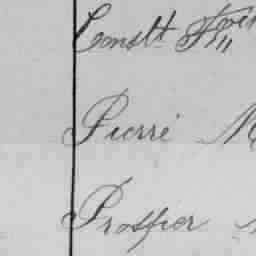 Constt
Pierré M
Prosper